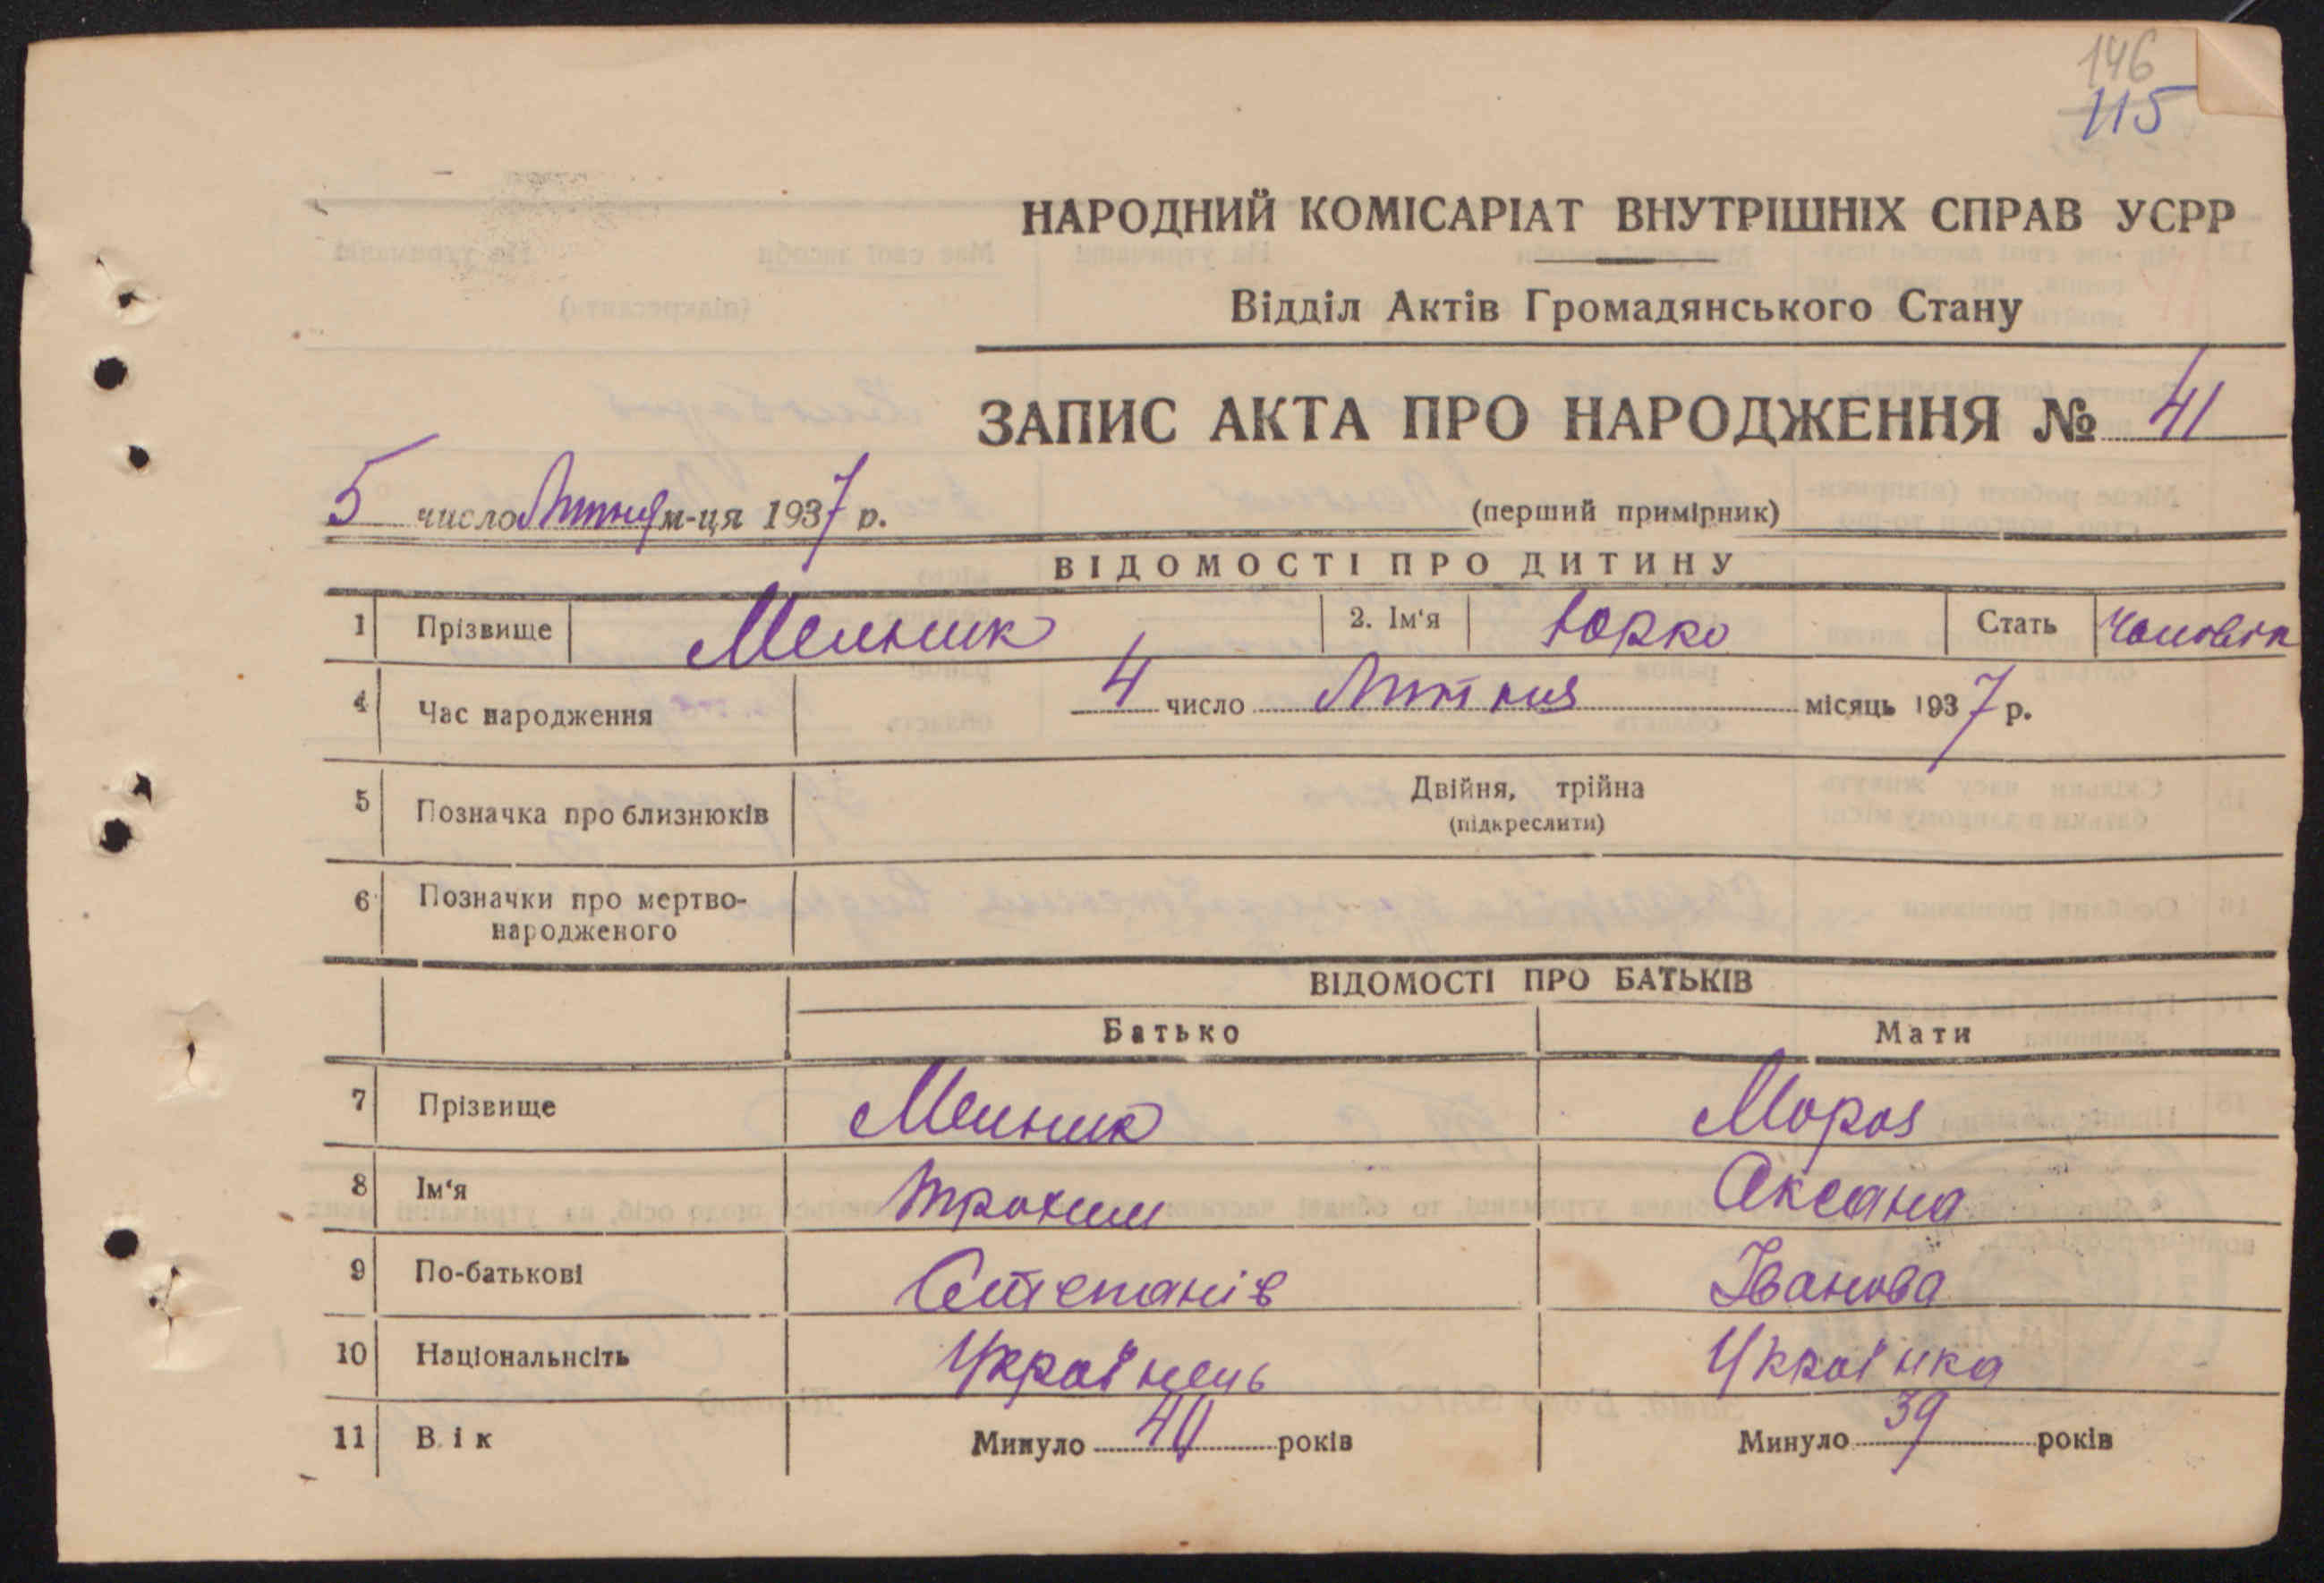 146
115
НАРОДНИЙ КОМІСАРІАТ ВНУТРІШНІХ СПРАВ УСРР
Відділ Актів Громадянського Стану
ЗАПИС АКТА ПРО НАРОДЖЕННЯ № 41
5 число Лютня м-ця 1937 р. (перший примірник)
ВІДОМОСТІ ПРО ДИТИНУ
1 Прізвище Мельник 2. Ім'я Юрко Стать Чоловік
4 Час народження 4 число Лютня місяць 1937 р.
5 Позначка про близнюків Двійня, трійна
(підкреслити)
6 Позначки про мертво-
народженого
ВІДОМОСТІ ПРО БАТЬКІВ
Батько Мати
7 Прізвище Мельник Мороз
8 Ім'я Трохим Оксана
9 По-батькові Степанів Іванова
10 Національнсіть Українець Українка
11 Вік Минуло 40 років Минуло 39 років